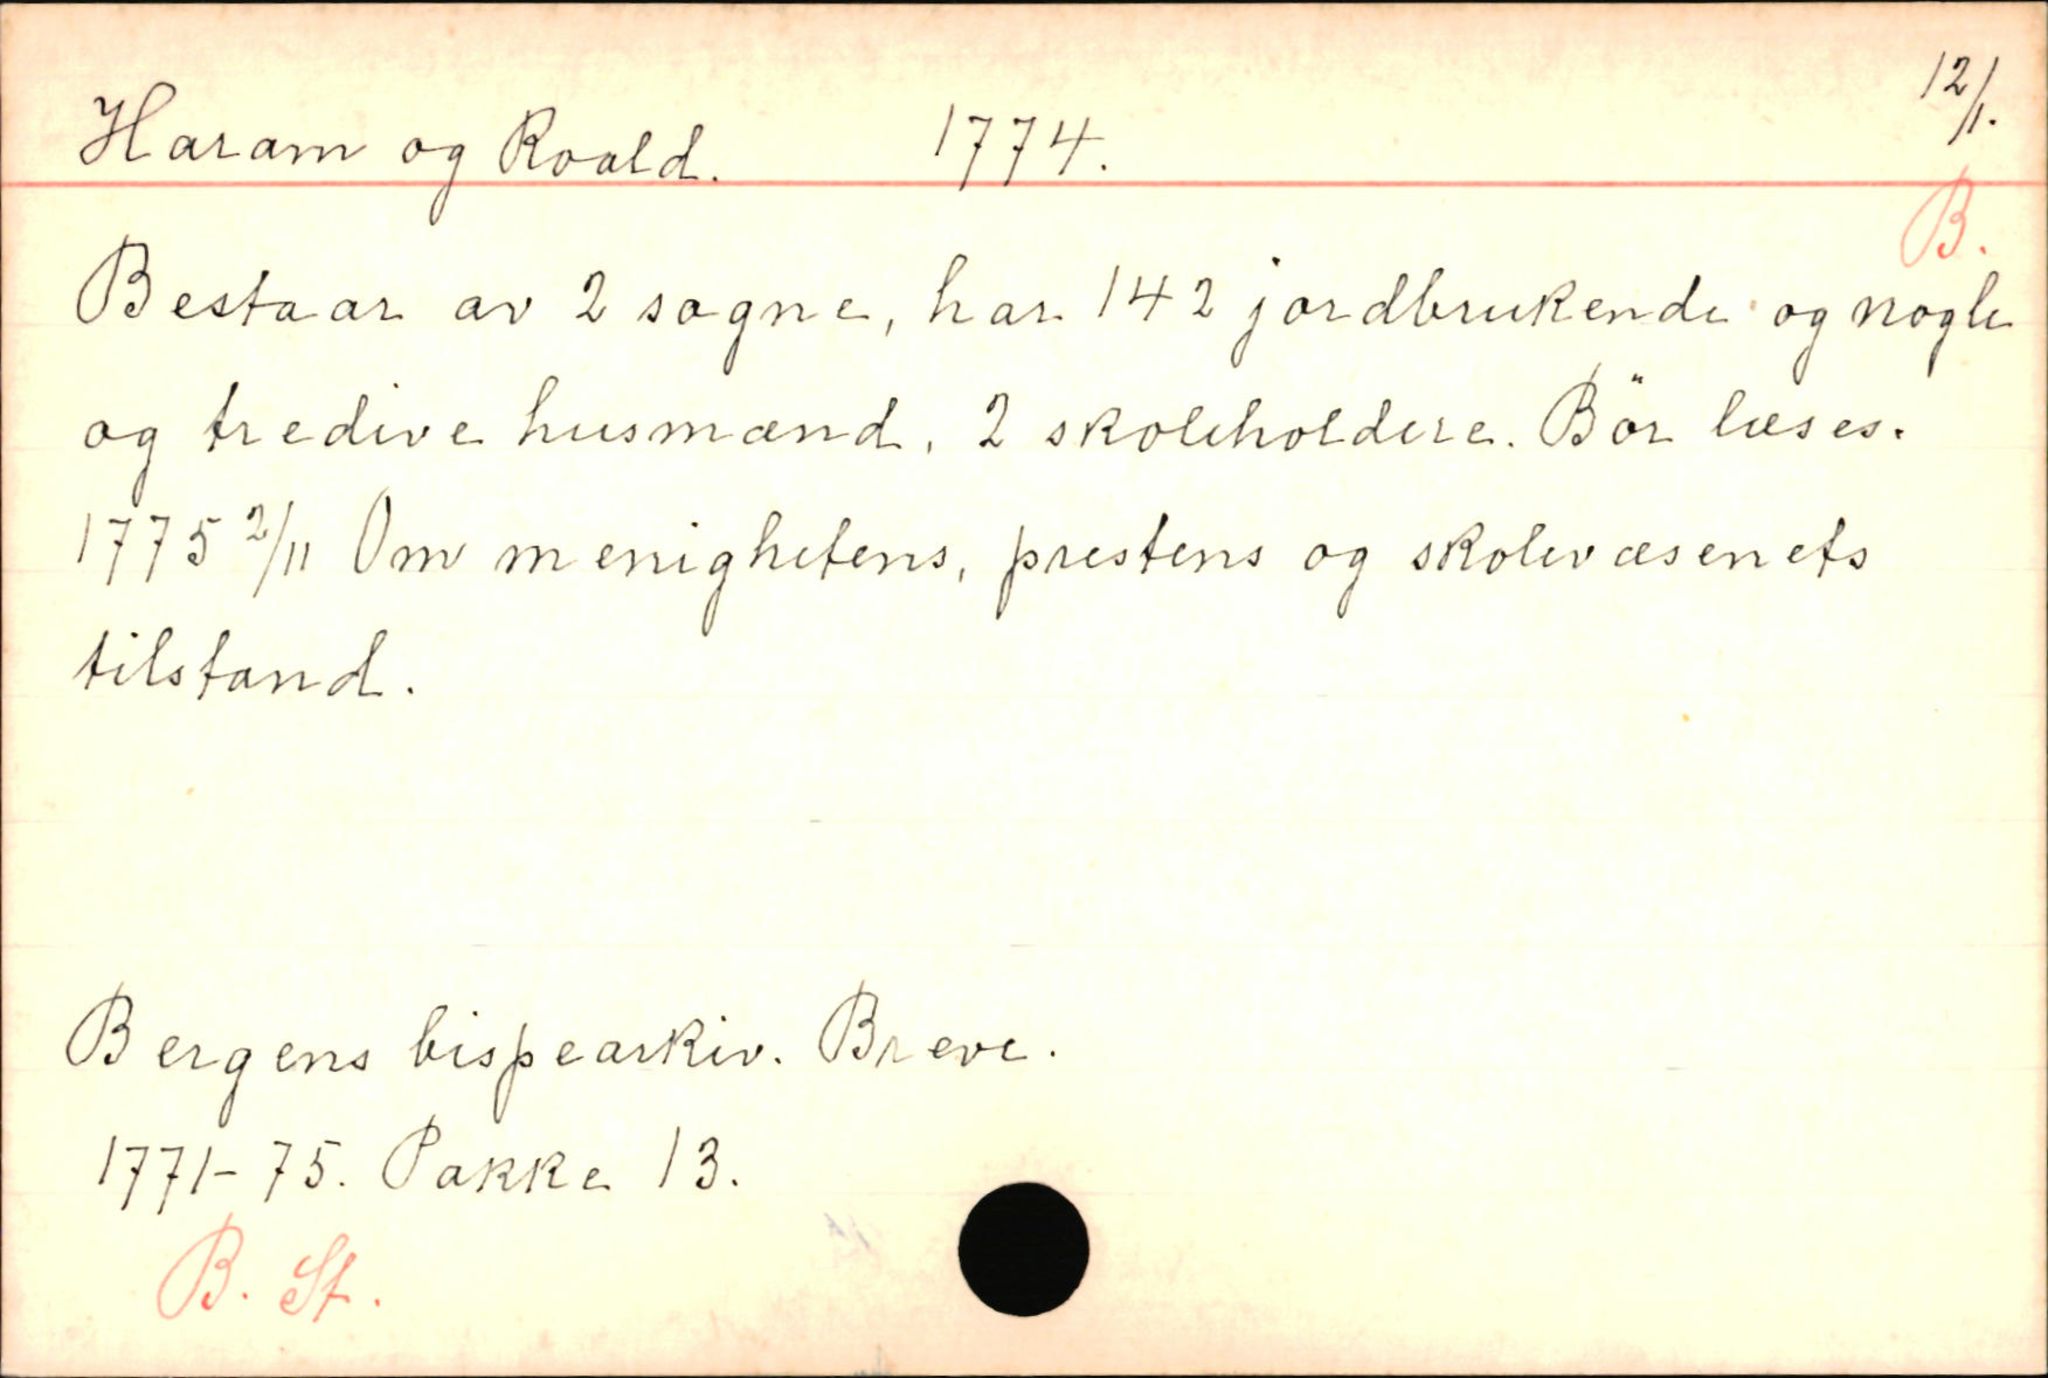 Haram og Roald. 1774. 12/1.
B.
Bestaar av 2 sogne, har 142 jordbrukende og nogle
og tredive husmænd, 2 skoleholdere. Bör læses.
1775 2/11 Om menighetens, prestens og skolevæsenets
tilstand.
Bergens bispearkiv. Breve.
1771-75. Pakke 13.
B. St.